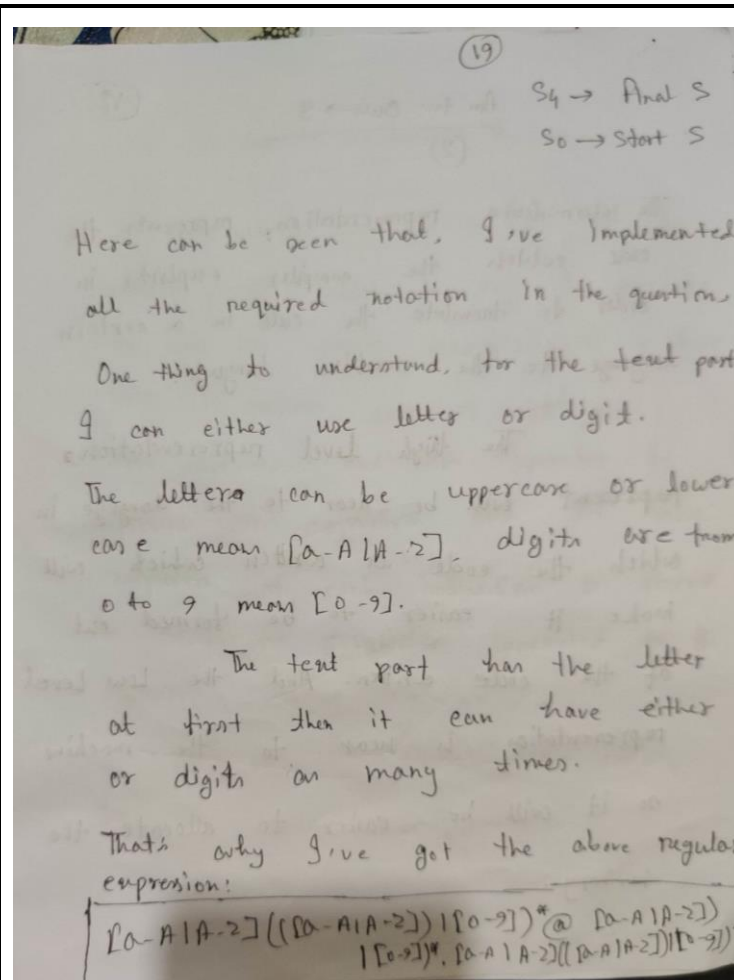 19
S4 → Final S
S0 → Start S
Here can be seen that, I've Implemented
all the required notation in the question.
One thing to understand, for the text part
I can either use letter or digit.
The letters can be uppercase or lower
case mean [a-A|A-Z]. digits are from
0 to 9 mean [0-9].
The text part has the letter
at first then it can have either
or digits as many times.
That's why I've got the above regular
expression:
[a-A|A-Z](([a-A|A-Z])|[0-9])*@ [a-A|A-Z])
|[0-9])*. [a-A|A-Z](([a-A|A-Z])|[0-9])